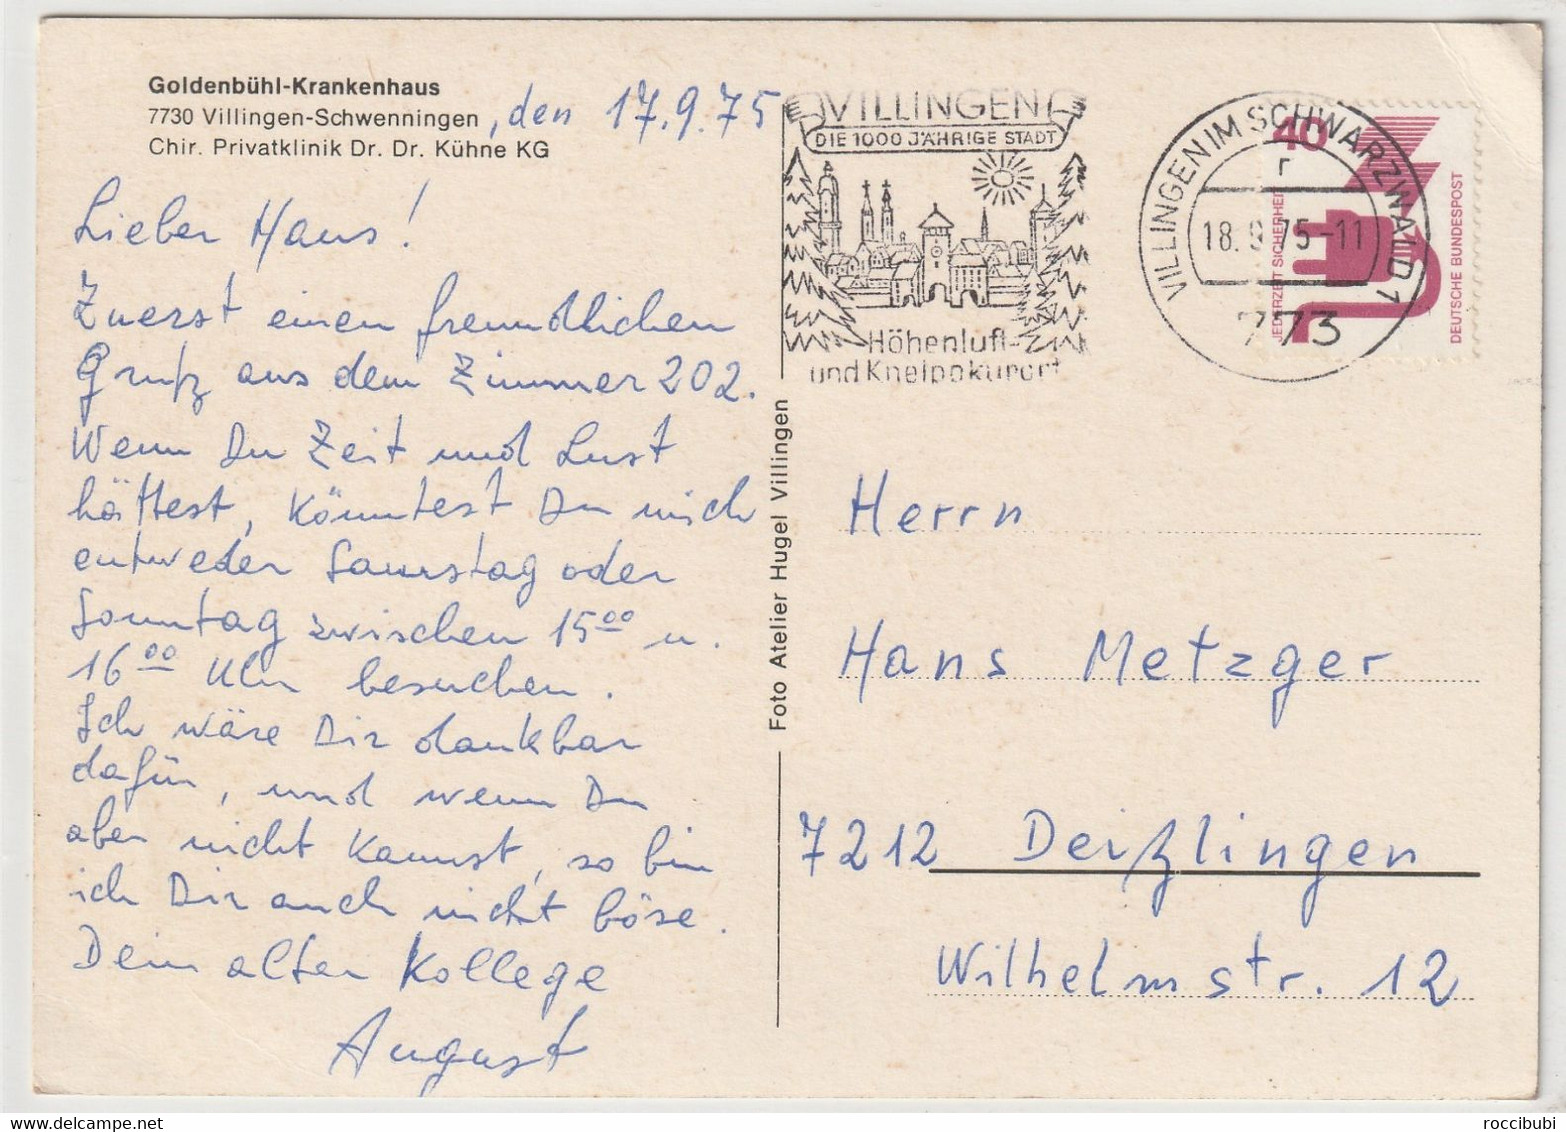 Goldenbühl-Krankenhaus
7730 Villingen-Schwenningen, den 17.9.75
Chir. Privatklinik Dr. Dr. Kühne KG
Lieber Hans!
Zuerst einen freundlichen
Gruß aus dem Zimmer 202.
Wenn Du Zeit und Lust
hättest, könntest Du mich
entweder Samstag oder
Sonntag zwischen 15⁰⁰ u.
16⁰⁰ Uhr besuchen.
Ich wäre Dir dankbar
dafür, und wenn Du
aber nicht kannst, so bin
ich Dir auch nicht böse.
Dein alter Kollege
August
Foto Atelier Hugel Villingen
VILLINGEN
DIE 1000 JÄHRIGE STADT
Höhenluft-
und Kneippkurort
VILLINGEN IM SCHWARZWALD 1
r
18.9.75-11
773
40
JEDERZEIT SICHERHEIT
DEUTSCHE BUNDESPOST
Herrn
Hans Metzger
7212 Deißlingen
Wilhelmstr. 12
roccibubi